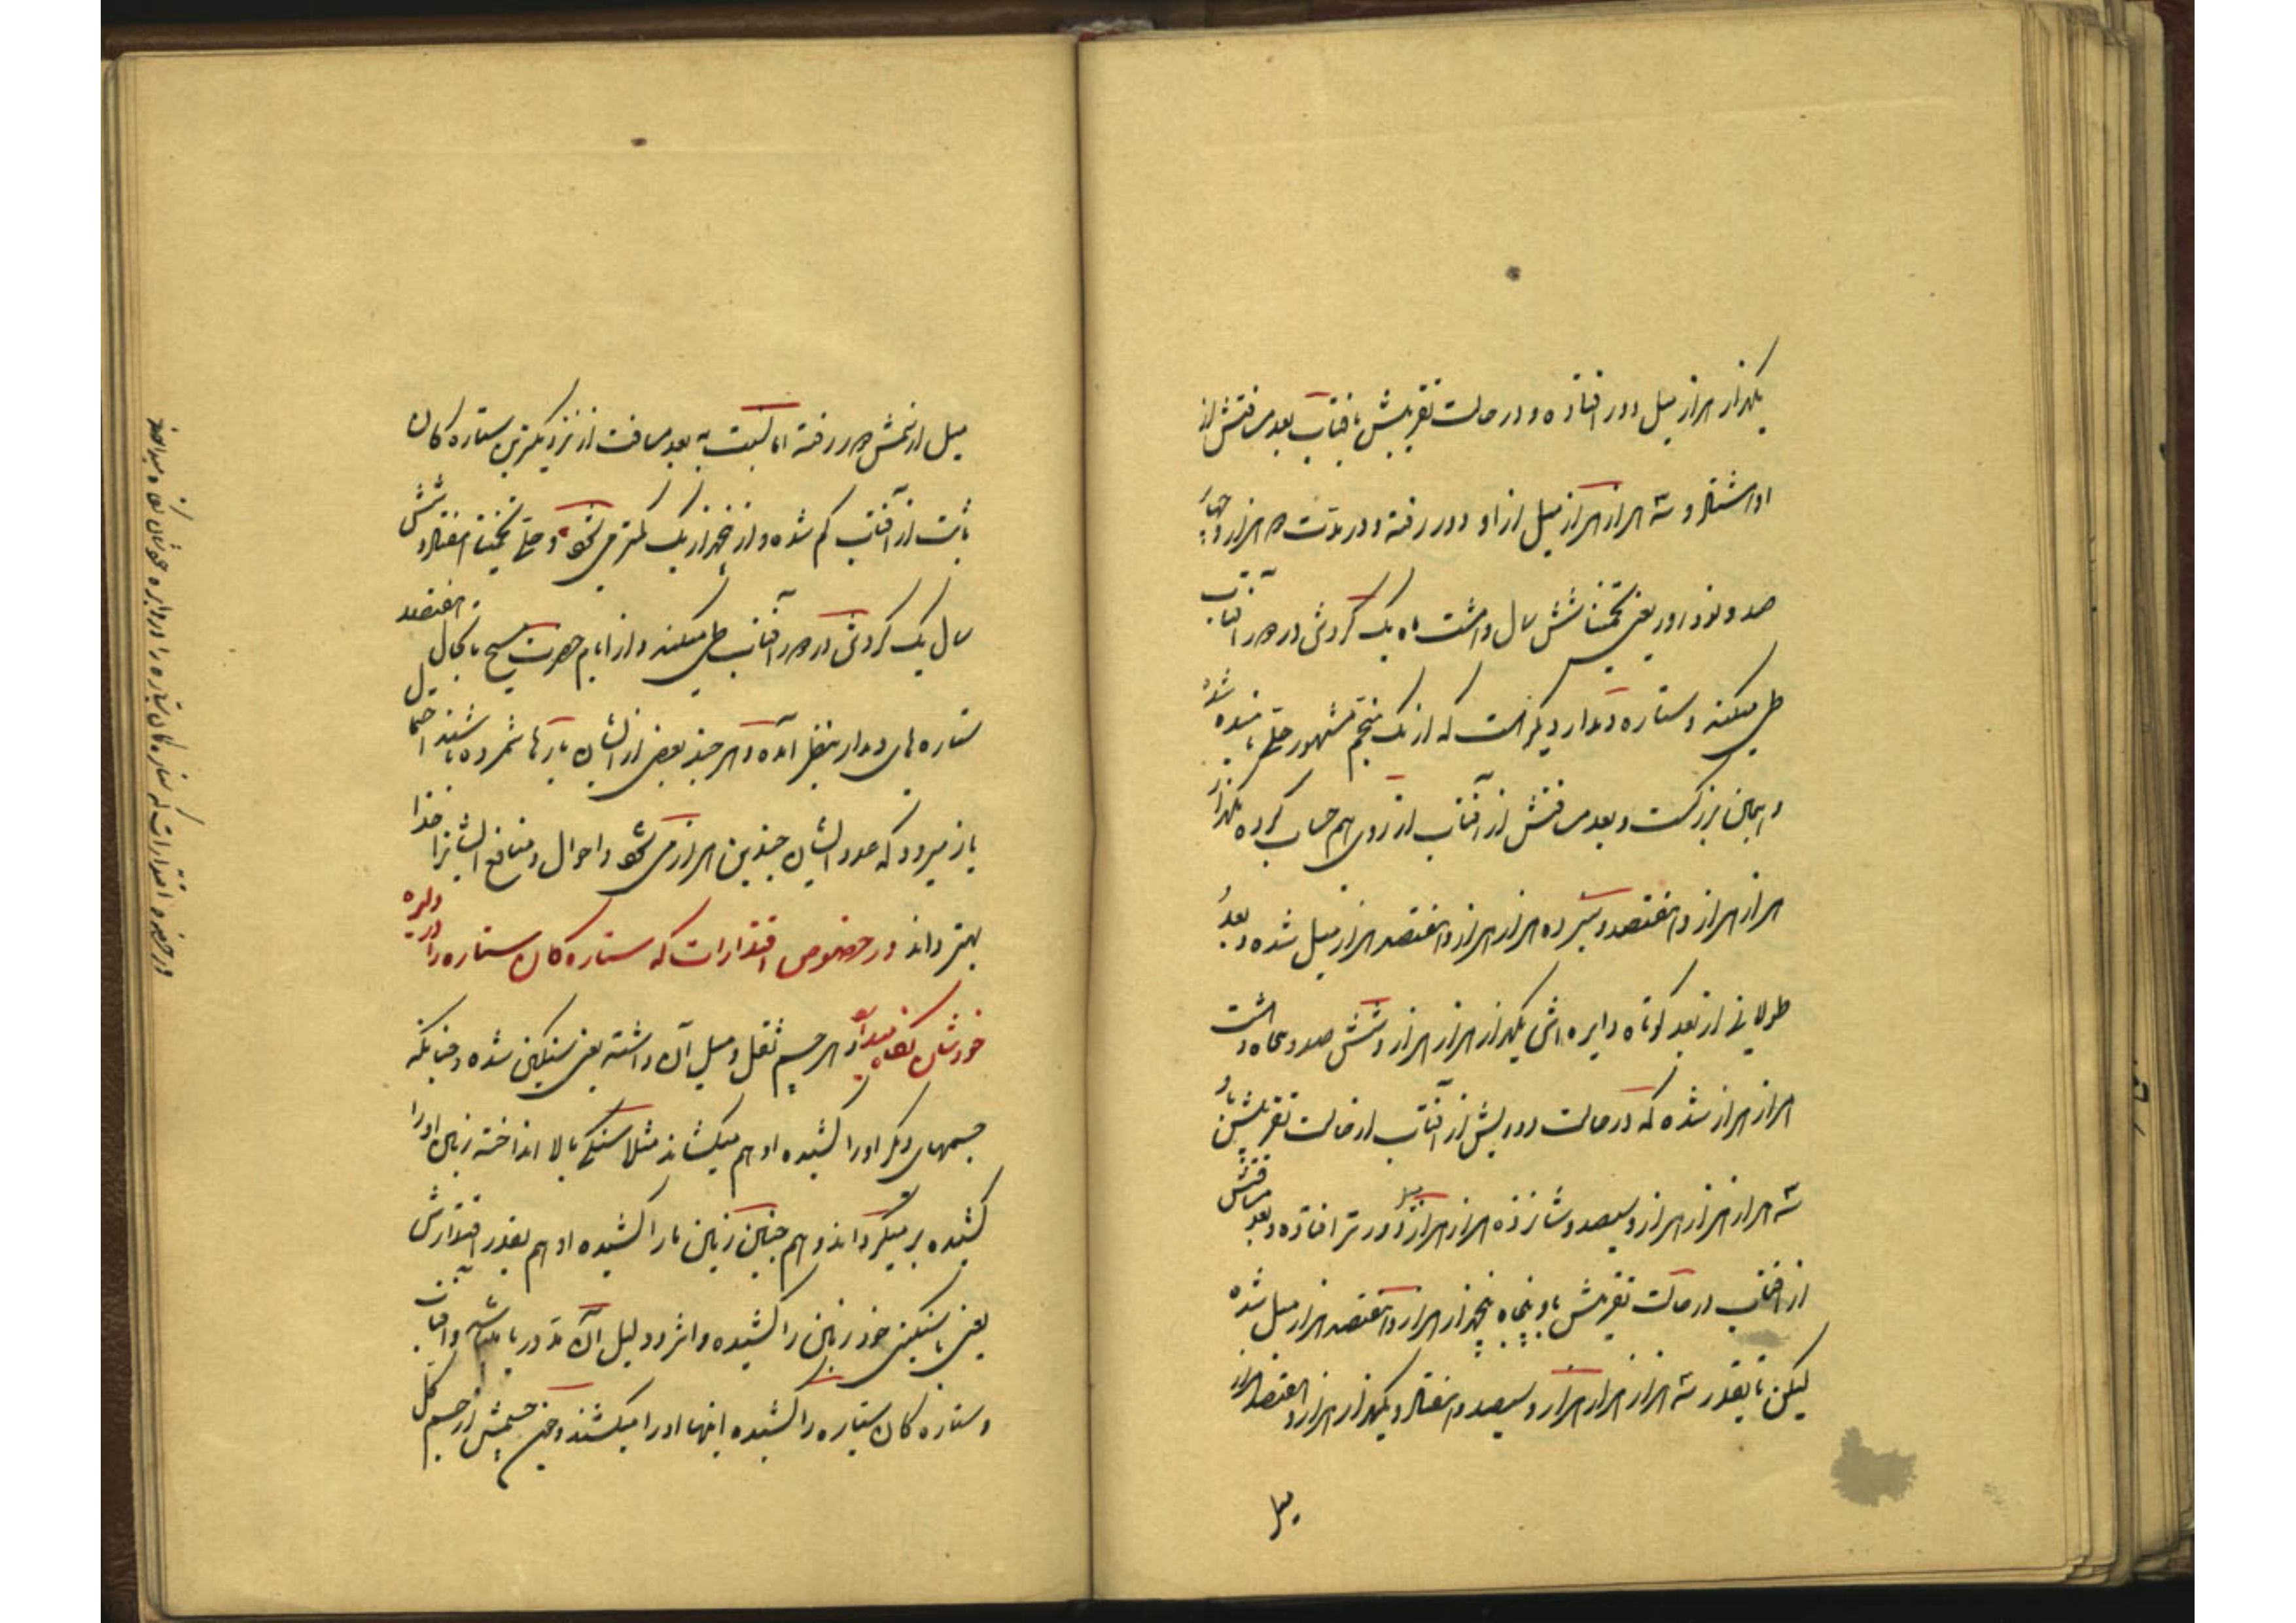 یکهزار هزار میل دور افتاده و در حالت تقریبش بافتاب بعد مسافتش از
او هشتاد و سه هزار هزار میل از او دور رفته و در مدت دو هزار و چهار
صد و نود روز یعنی تخمیناً شش سال و هشت ماه یک گردش در دور آفتاب
طی میکند و ستاره دمدار دیگر است که از یک منجم مشهور حلی نامیده شده
و اینجانب بزرگست و بعد مسافتش از آفتاب از روی هم حساب کرده یکهزار
هزار هزار و هفتصد و سیزده هزار هزار و هفتصد هزار میل شده و بعد
طولانی از بعد کوتاه دایره اش یکهزار هزار هزار و شش صد و پنجاه و هشت
هزار هزار شده که در حالت دوریش از آفتاب از حالت تقریبش باو
سه هزار هزار هزار و سیصد و شانزده هزار هزار میل دورتر افتاده و بعد مسافتش
از افتاب در حالت تقریبش باو پنجاه پنجهزار هزار و هفتصد هزار میل شده
لیکن تا بقدر سه هزار هزار هزار و سیصد و هفتاد و یکهزار هزار و هفتصد هزار
میل
میل از شمس دور رفته اما نسبت به بعد مسافت از نزدیکترین ستاره کان
ثابت از آفتاب کم شده و از پنجهزار یک کمتر می شود و حلی تخمیناً هفتاد و شش
سال یک گردش در دور آفتاب طی میکند و از ایام حضرت مسیح تا بحال هفتصد
ستاره های دمدار بنظر آمده و هر چند بعضی از ایشان بارها شمرده باشند احتمال
باز میرود که عدد ایشان چندین هزار می شود و احوال و منافع ایشانرا خدا
بهتر داند در خصوص اقتدارات که ستاره کان ستاره را در دایره
خودشان نگاه میدارد هر جسم ثقل و میل آن داشته یعنی سنگین شده و چنانکه
جسمهای دیگر او را کشیده او هم میکشاند مثلا سنگی بالا انداخته زمین او را
کشیده بر میگرداند و هم چنین زمین ما را کشیده او هم بقدر اقتدارش
یعنی با سنگینی خود زمین را کشیده و اثر و دلیل آن مد دریا میباشد و آفتاب
و ستاره کان سیاره را کشیده اینها او را میکشند و چون جسمش از جسم کل
در خصوص اقتدارات که ستاره کان سیاره را در دایره خودشان نگاه میدارند